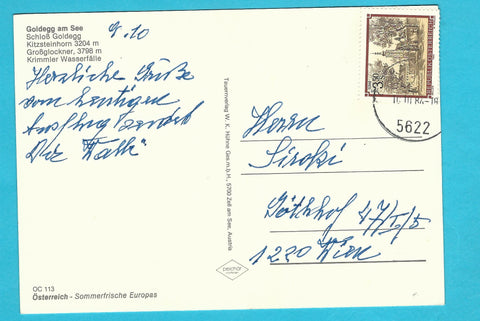 Goldegg am See
Schloß Goldegg
Kitzsteinhorn 3204 m
Großglockner, 3798 m
Krimmler Wasserfälle
9.10
Herzliche Grüße
vom heutigen
Ausflug sendet
Die
Teuernverlag W. K. Hühne Ges.m.b.H., 5700 Zell am See, Austria
Herrn
Siroki
47/I/5
1220 Wien
5622
OC 113
Österreich - Sommerfrische Europas